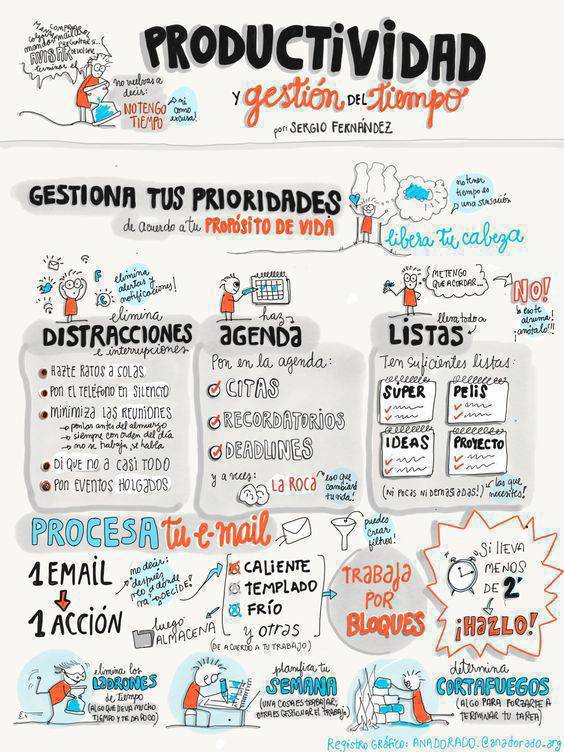 PRODUCTIVIDAD
y gestión DEL tiempo
por: SERGIO FERNÁNDEZ
AVISAR
no vuelvas a
decir:
NO TENGO
TIEMPO
ni
como
excusa!
GESTIONA TUS PRIORIDADES
de acuerdo a tu PROPÓSITO DE VIDA
no tener
tiempo es
una sensación
libera tu cabeza
elimina
alertas y
notificaciones!
elimina
DISTRACCIONES
e interrupciones
HAZTE RATOS A SOLAS
PON EL TELÉFONO EN SILENCIO
MINIMIZA LAS REUNIONES
→ ponlas antes del almuerzo
→ siempre con orden del día
→ no se trabaja, se habla
DI QUE NO A CASI TODO
PON EVENTOS HOLGADOS
haz
AGENDA
Pon en la agenda:
CITAS
RECORDATORIOS
DEADLINES
y a veces:
LA ROCA
eso que
cambiará
tu vida!
ME TENGO
QUE ACORDAR...
NO!
eso te
abruma!
¡anótalo!!!
llévalo todo a
LISTAS
Ten suficientes listas:
SUPER
PELIS
IDEAS
PROYECTO
(ni pocas ni demasiadas!)
las que
necesites!
PROCESA tu e-mail
puedes
crear
filtros!
1 EMAIL
1 ACCIÓN
no decir:
después
veo a dónde
va
DECIDE!
luego
ALMACENA
CALIENTE
TEMPLADO
FRÍO
y otras
(DE ACUERDO A TU TRABAJO)
TRABAJA
POR
BLOQUES
SI LLEVA
MENOS
DE 2'
¡HAZLO!
elimina los
LADRONES
de tiempo
(ALGO QUE LLEVA MUCHO
TIEMPO Y TE DA POCO)
planifica tu
SEMANA
(UNA COSA ES TRABAJAR,
OTRA ES GESTIONAR EL TRABAJO)
determina
CORTAFUEGOS
(ALGO PARA FORZARTE A
TERMINAR TU TAREA)
Registro Gráfico: ANADORADO. @anadorado.org